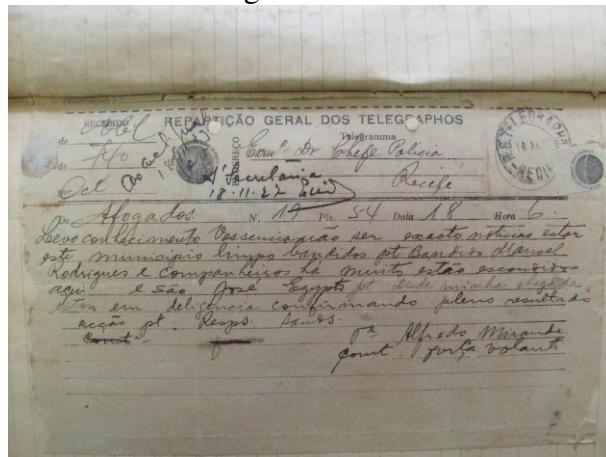 RECEBIDO
REPARTIÇÃO GERAL DOS TELEGRAPHOS
de
Telegramma
ENDEREÇO
Exmº Dr Chefe Policia
Recife
18.11.22
De Afogados N. 19 Pls. 54 Data 18 Hora 6.
Levo conhecimento Vossencia não ser exacto noticias estar
este municipio limpo bandidos pt Bandido Manoel
Rodrigues e companheiros ha muito estão escondidos
aqui e são José Egypto pt desde minha chegada
estou em deligencia confirmando pleno resultado
acção pt Resps. Sauds.
Alfredo Miranda
Comt. força volante